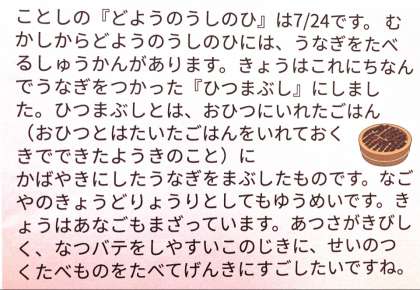 ことしの『どようのうしのひ』は7/24です。 む
かしからどようのうしのひには、うなぎをたべ
るしゅうかんがあります。きょうはこれにちなん
でうなぎをつかった『ひつまぶし』にしまし
た。ひつまぶしとは、おひつにいれたごはん
（おひつとはたいたごはんをいれておく
きでできたようきのこと）に
かばやきにしたうなぎをまぶしたものです。なご
やのきょうどりょうりとしてもゆうめいです。き
ょうはあなごもまざっています。あつさがきびし
く、なつバテをしやすいこのじきに、せいのつ
くたべものをたべてげんきにすごしたいですね。